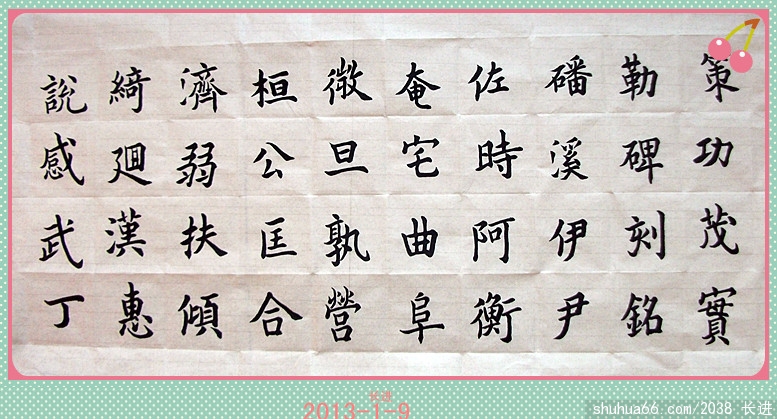 策功茂實
勒碑刻銘
磻溪伊尹
佐時阿衡
奄宅曲阜
微旦孰營
桓公匡合
濟弱扶傾
綺迴漢惠
說感武丁
长进
2013-1-9
shuhua66.com/2038 长进